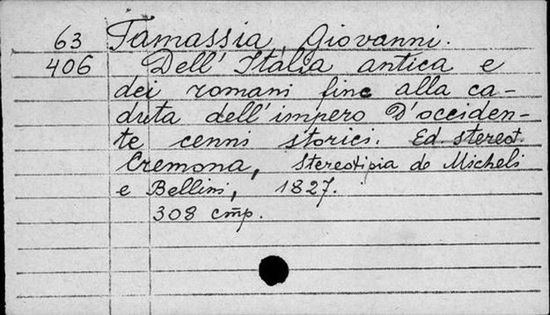 63 Tamassia Giovanni.
406 Dell' Italia antica e
dei romani fine alla ca-
duta dell'impero D'occiden-
te cenni storici. Ed. stereot.
Cremona, Stereotipia de Micheli
e Bellini, 1827.
308 стр.